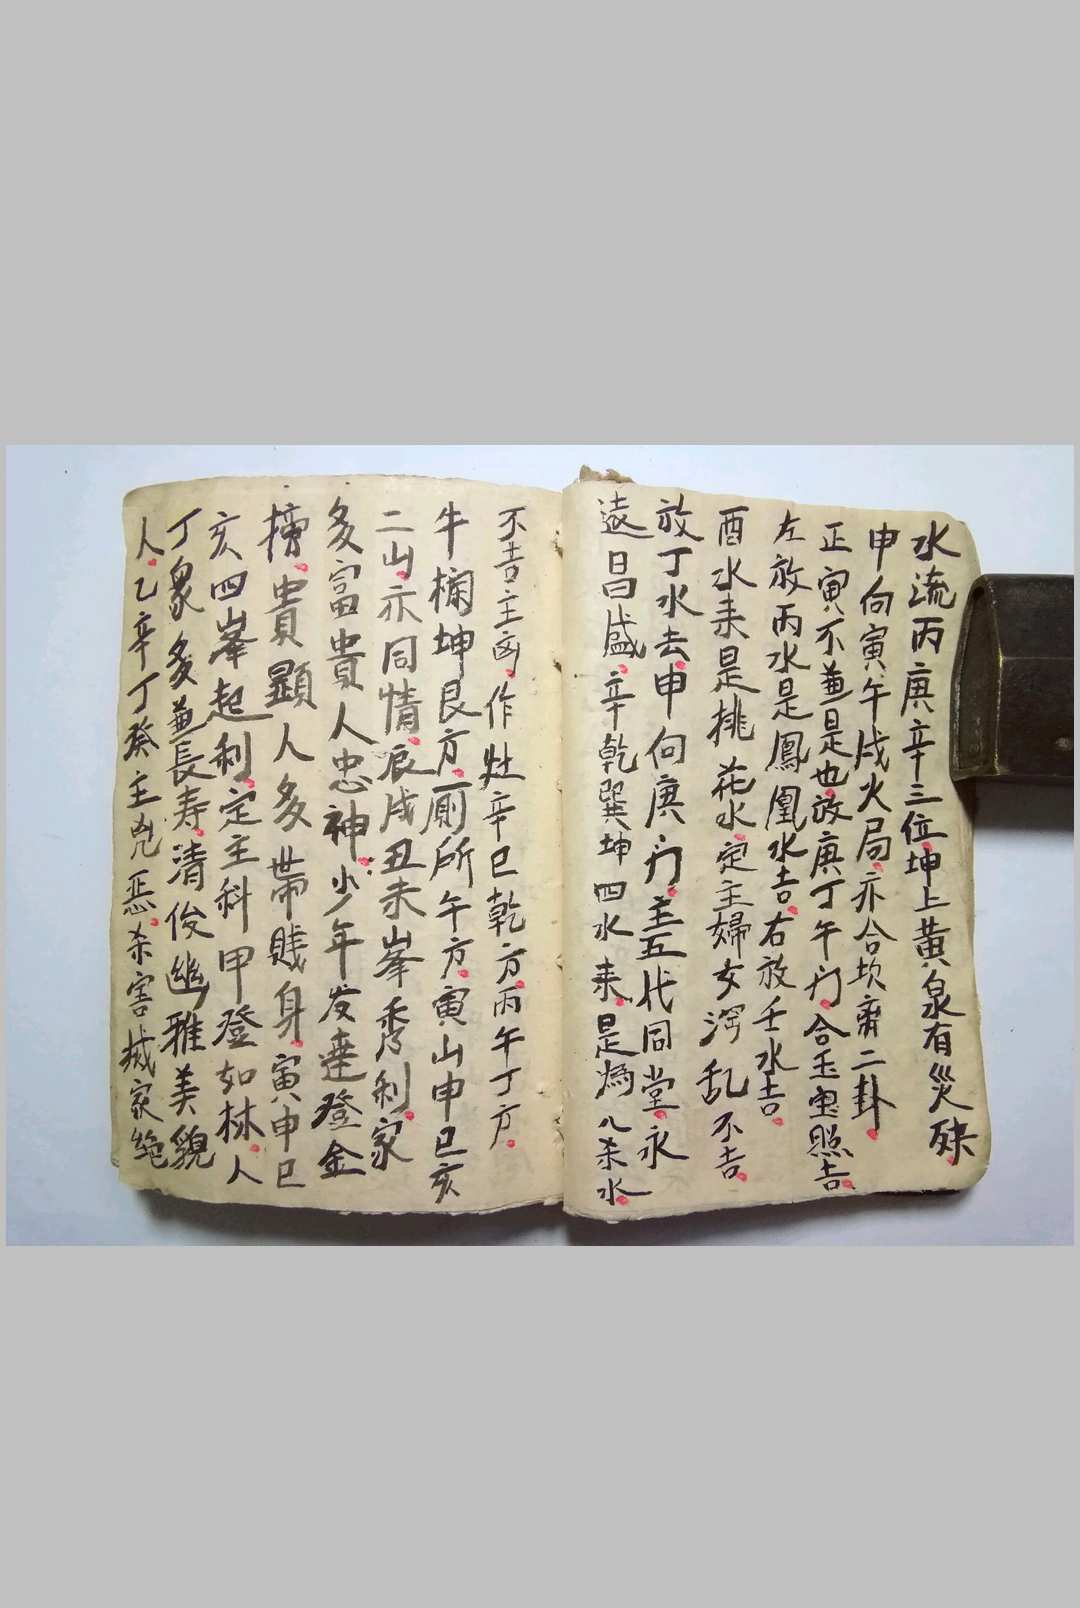 水流丙庚辛三位坤上黃泉有災殃
申向寅午戌火局亦合坎离二卦
正寅不兼是也放庚丁午门合玉宝照吉
左放丙水是鳳凰水吉右放壬水吉
酉水来是桃花水定主婦女淫乱不吉
放丁水去申向庚门主五代同堂永
遠昌盛辛乾巽坤四水来是為八杀水
不吉主凶作灶辛巳乾方丙午丁方
牛欄坤艮方厠所午方寅山申巳亥
二山亦同情辰戌丑未峯秀利家
多富貴人忠神少年发達登金
榜貴顯人多带贱身寅申巳
亥四峯起利定主科甲登如林人
丁衆多兼長寿清俊幽雅美貌
人乙辛丁癸主兇恶杀害掝家绝